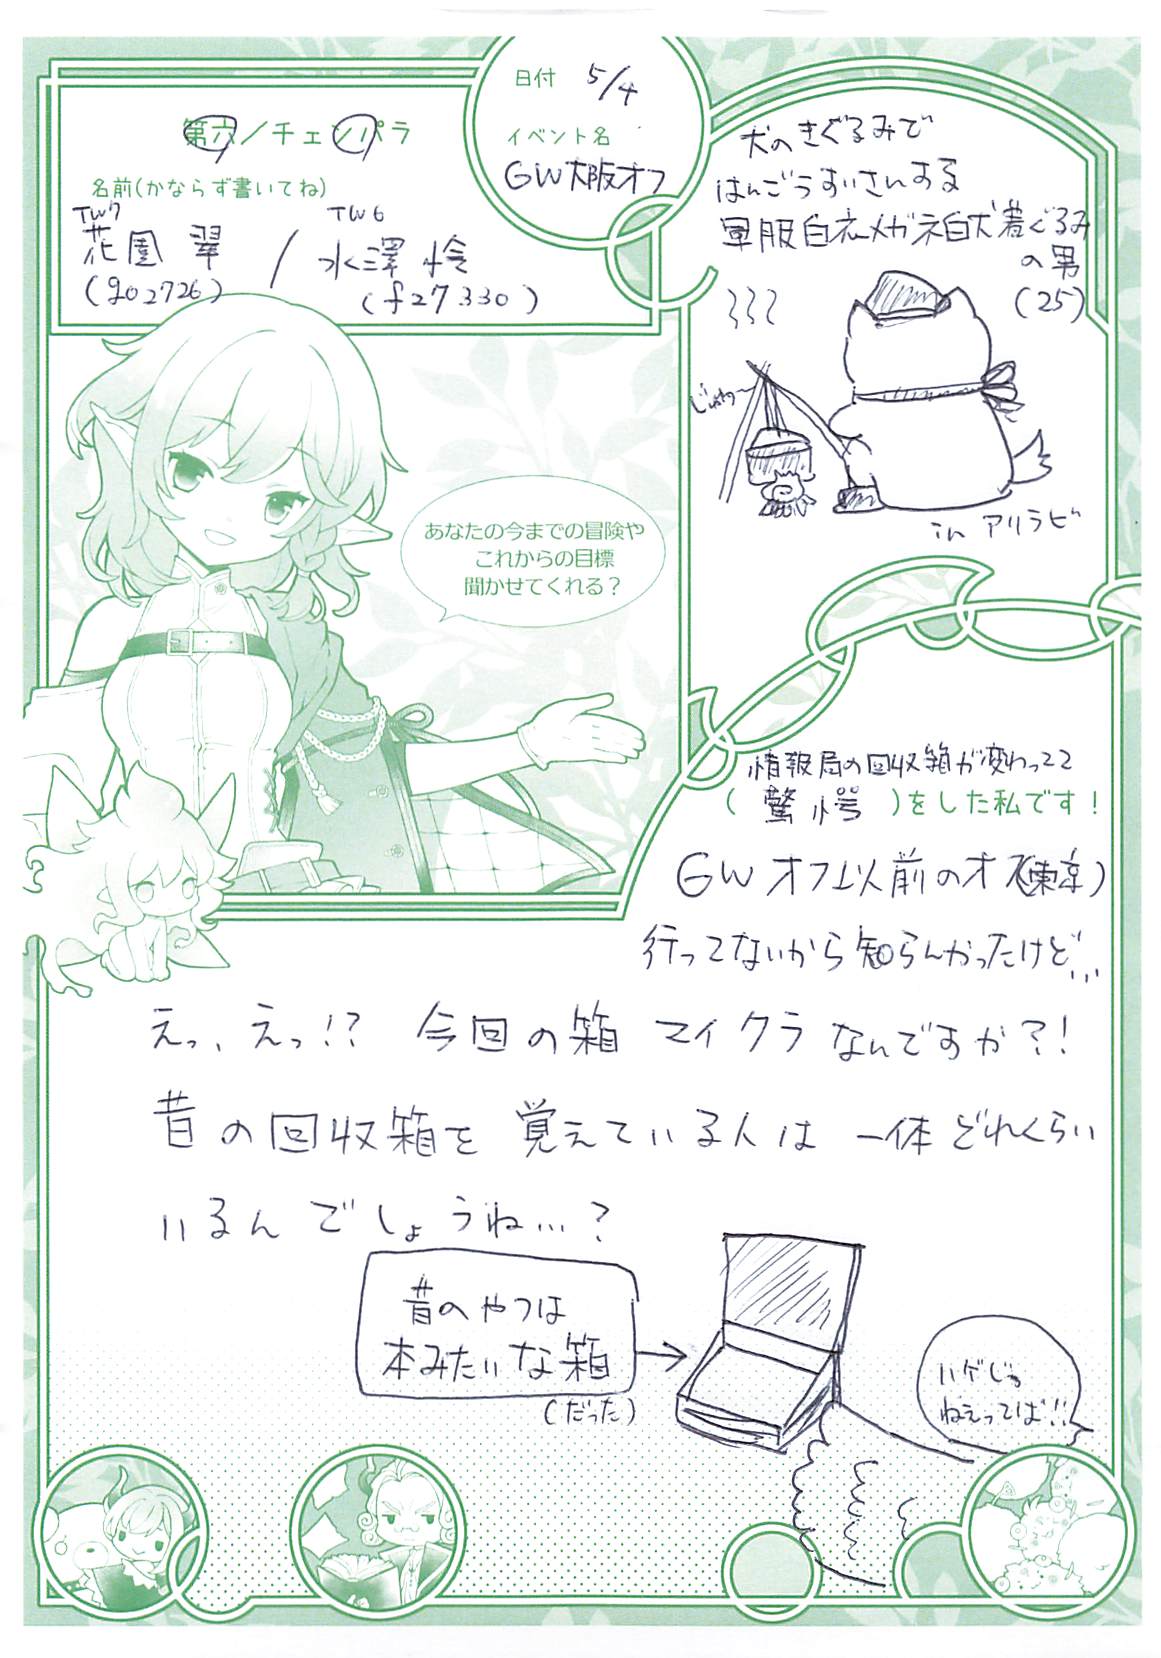 日付 5/4
イベント名
GW大阪オフ
第六／チェンパラ
名前(かならず書いてね)
TW7
花園 翠
(g02726)
/
TW6
水澤 怜
(f27330)
犬のきぐるみで
はんごうすいさんする
軍服白衣メガネ白犬着ぐるみ
の男
(25)
じゅわ〜
in アリラビ
あなたの今までの冒険や
これからの目標
聞かせてくれる？
情報局の回収箱が変わってて
( 驚愕 )をした私です！
GWオフ以前のオフ(東京)
行ってないから知らんかったけど…
えっ、えっ!? 今回の箱 マイクラなんですか?!
昔の回収箱を覚えている人は 一体どれくらい
いるんでしょうね…?
昔のやつは
本みたいな箱
(だった)
ハゲじゃ
ねぇってば!!